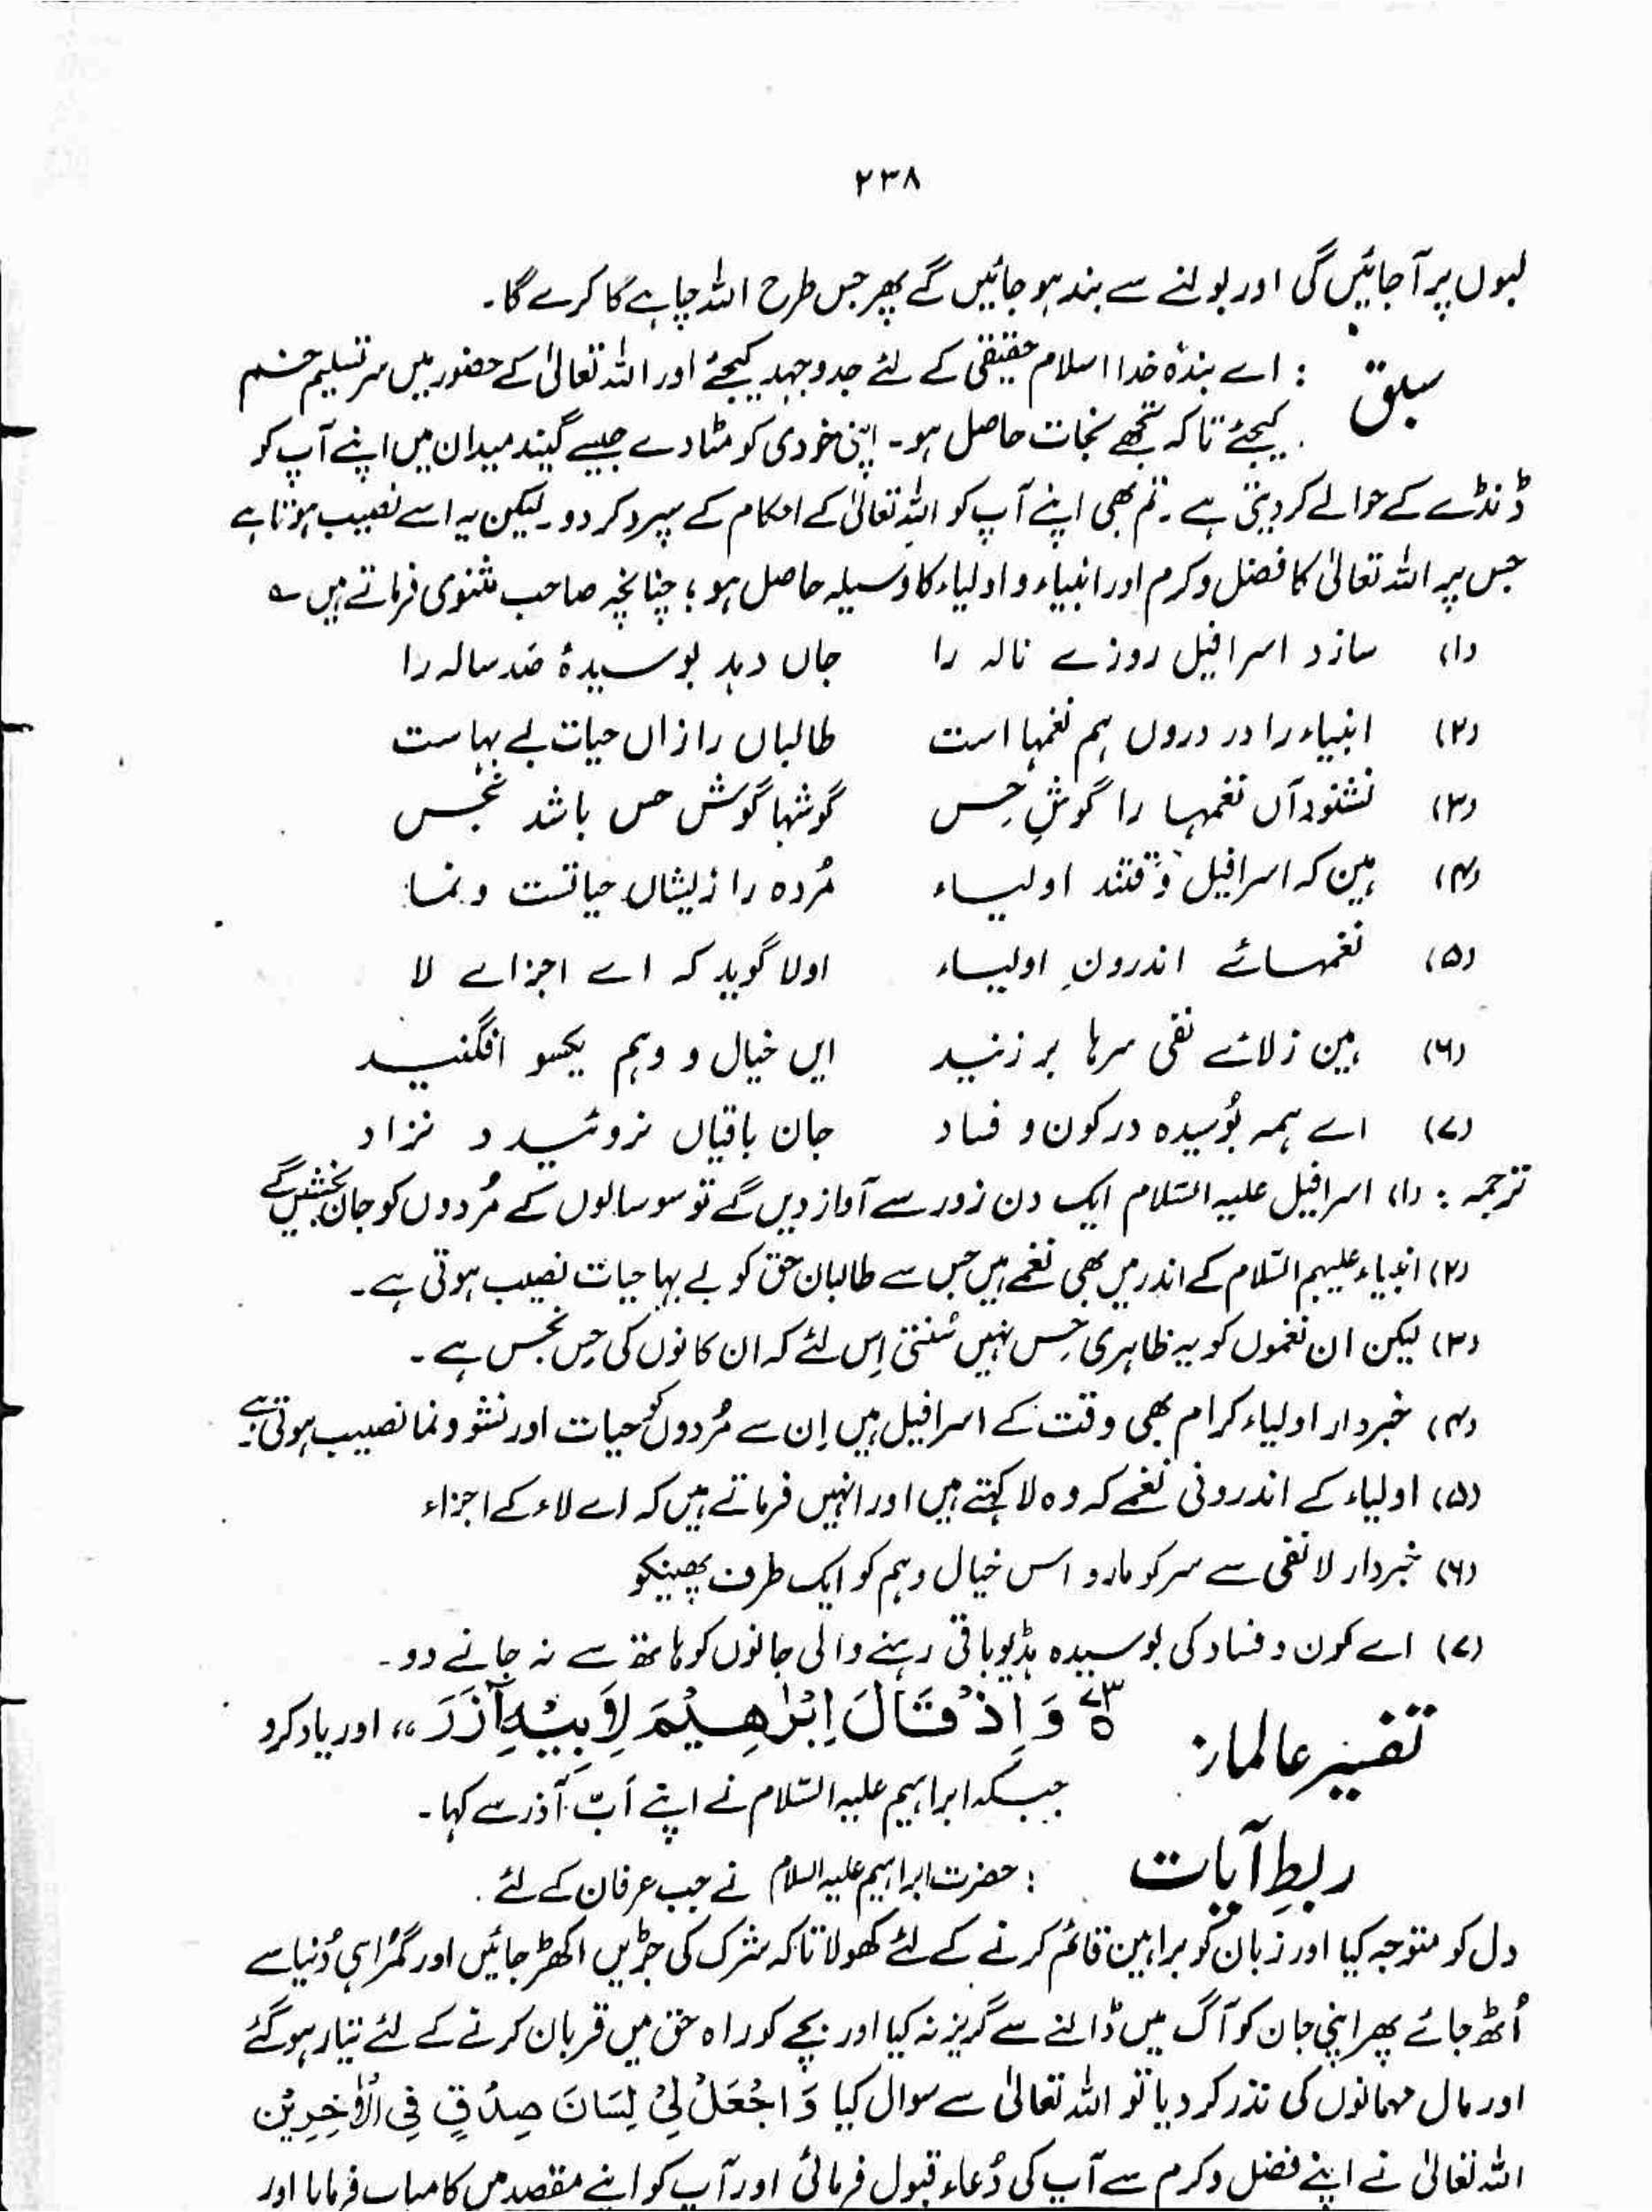 ۲۳۸
لبوں پر آجائیں گی اور بولنے سے بند ہو جائیں گے پھر جس طرح اللہ چاہے گا کرے گا۔
سبق : اے بندۂ خدا اسلام حقیقی کے لئے جدوجہد کیجئے اور اللہ تعالیٰ کے حضور میں سر تسلیم خم
کیجئے تاکہ تجھے نجات حاصل ہو۔ اپنی خودی کو مٹا دے جیسے گیند میدان میں اپنے آپ کو
ڈنڈے کے حوالے کر دیتی ہے۔ تم بھی اپنے آپ کو اللہ تعالیٰ کے احکام کے سپرد کر دو۔ لیکن یہ اسے نصیب ہوتا ہے
جس پر اللہ تعالیٰ کا فضل و کرم اور انبیاء و اولیاء کا وسیلہ حاصل ہو؛ چنانچہ صاحب مثنوی فرماتے ہیں ؎
(۱) سازد اسرافیل روزے نالہ را جاں دہد بوسیدۂ صد سالہ را
(۲) انبیاء را در دروں ہم نغمہا است طالباں را زاں حیات بے بہاست
(۳) نشنود آں نغمہا را گوشِ حِس گوشہا گوش حس باشد نجس
(۴) ہین کہ اسرافیل وقتند اولیاء مُردہ را زیشاں حیاتست و نما
(۵) نغمہائے اندرونِ اولیاء اولا گوید کہ اے اجزاے لا
(۶) ہین زلائے نفی سرہا بر زنید ایں خیال و وہم یکسو افگنید
(۷) اے ہمہ بُوسیدہ در کون و فساد جان باقیاں نروئید و نزاد
ترجمہ : (۱) اسرافیل علیہ السّلام ایک دن زور سے آواز دیں گے تو سو سالوں کے مُردوں کو جان بخشیں گے
(۲) انبیاء علیہم السّلام کے اندر میں بھی نغمے ہیں جس سے طالبان حق کو بے بہا حیات نصیب ہوتی ہے۔
(۳) لیکن ان نغموں کو یہ ظاہری حِس نہیں سُنتی اِس لئے کہ ان کانوں کی حِس نجس ہے۔
(۴) خبردار اولیاء کرام بھی وقت کے اسرافیل ہیں اِن سے مُردوں کو حیات اور نشو و نما نصیب ہوتی ہے۔
(۵) اولیاء کے اندرونی نغمے کہ وہ لا کہتے ہیں اور انہیں فرماتے ہیں کہ اے لاء کے اجزاء
(۶) خبردار لا نفی سے سر کو مارو اس خیال وہم کو ایک طرف پھینکو
(۷) اے کون و فساد کی بوسیدہ ہڈیو باقی رہنے والی جانوں کو ہاتھ سے نہ جانے دو۔
تفسیر عالمانہ ۷۳ وَ اِذْ قَالَ اِبْرٰهِيْمَ لِاَبِيْهِ آزَرَ ،، اور یاد کرو
جبکہ ابراہیم علیہ السّلام نے اپنے اَبّ آذر سے کہا۔
ربطِ آیات : حضرت ابراہیم علیہ السلام نے جب عرفان کے لئے
دل کو متوجہ کیا اور زبان کو براہین قائم کرنے کے لئے کھولا تاکہ شرک کی جڑیں اکھڑ جائیں اور گمراہی دُنیا سے
اُٹھ جائے پھر اپنی جان کو آگ میں ڈالنے سے گریز نہ کیا اور بچے کو راہ حق میں قربان کرنے کے لئے تیار ہو گئے
اور مال مہمانوں کی نذر کر دیا تو اللہ تعالیٰ سے سوال کیا وَ اجْعَلْ لِّيْ لِسَانَ صِدْقٍ فِي الْاٰخِرِيْن
اللہ تعالیٰ نے اپنے فضل و کرم سے آپ کی دُعاء قبول فرمائی اور آپ کو اپنے مقصد میں کامیاب فرمایا اور